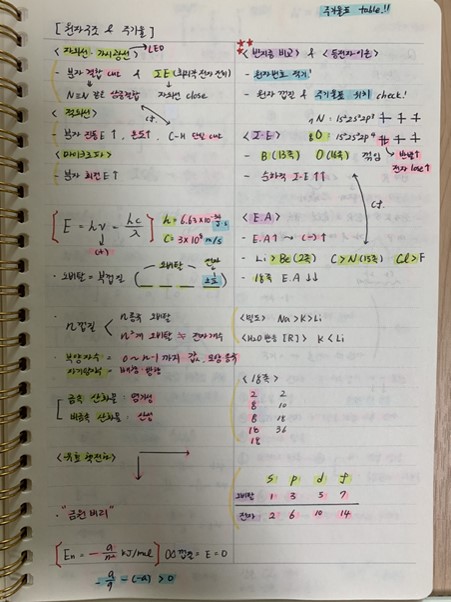 주기율표 table.!!
[원자구조 & 주기율]
<자외선·가시광선> → LED
- 분자 결합 cut & I.E
N≡N 분리 삼중결합 자외선 close
<적외선>
- 분자 진동 E↑, 온도↑, C-H 단일 cut
<마이크로파>
- 분자 회전 E↑
[E = hν = hc/λ]
(+)
h = 6.63×10⁻³⁴ J·s
C = 3×10⁸ m/s
· 오비탈 = 부껍질
오비탈 전자
· n껍질
n종류 오비탈
n²개 오비탈 ≒ 전자개수
· 부양자수 = 0 ~ n-1 까지 값, 모양 종류
자기양자수 = 방향
금속 산화물 : 염기성
비금속 산화물 : 산성
<유효 핵전하>
· "금원버리"
[En = - a/n² kJ/mol] ∞껍질 = E = 0
- a/9 - (-a) > 0
<반지름 비교> & <등전자이온>
- 원자번호 적기!
- 원자 껍질 & 주기율표 위치 check!
7N: 1s²2s²2p³
<I.E> 8O: 1s²2s²2p⁴
- B (13족) O (16족) 꺾임
반발↑
전자 lose↑
- 순차적 I.E↑↑
cf.
<E.A>
- E.A↑ → (-)↑
- Li > Be (2족) C > N (15족) Cl > F
- 18족 E.A↓↓
<밀도> Na > K > Li
<H₂O 반응 [R]> K < Li
<18족>
2 2
8 10
8 18
18 36
18
s p d f
오비탈 1 3 5 7
전자 2 6 10 14